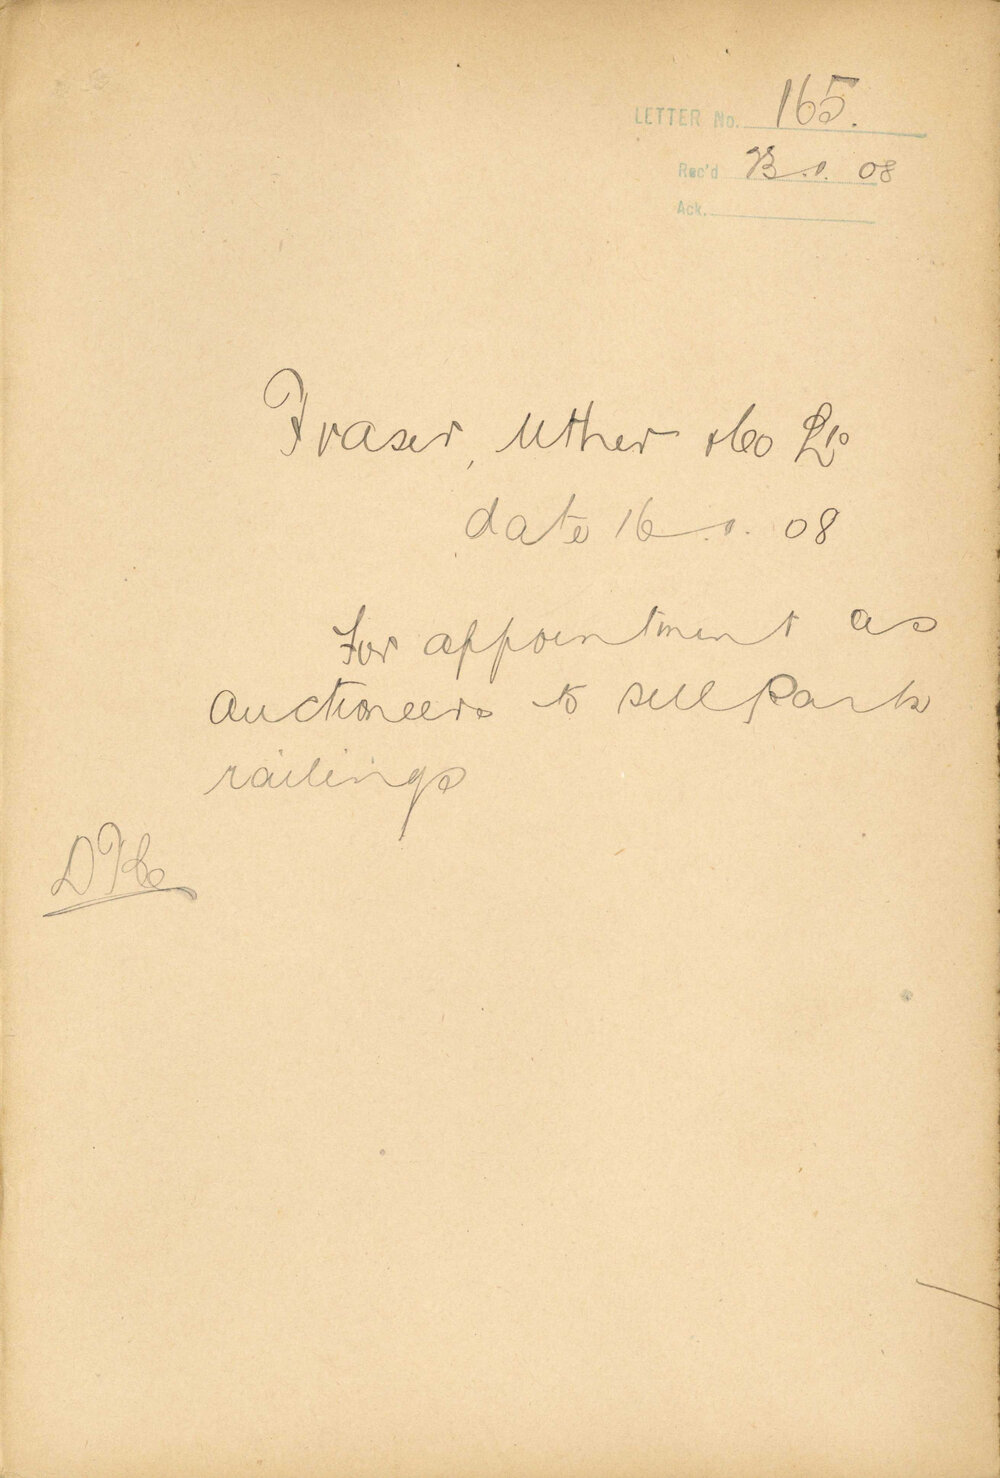 LETTER No. 165.
Rec'd 08
Ack.
Fraser, Uther & Co Ld
date 16 . 1 . 08
For appointment as
auctioneers to sell Park
railings